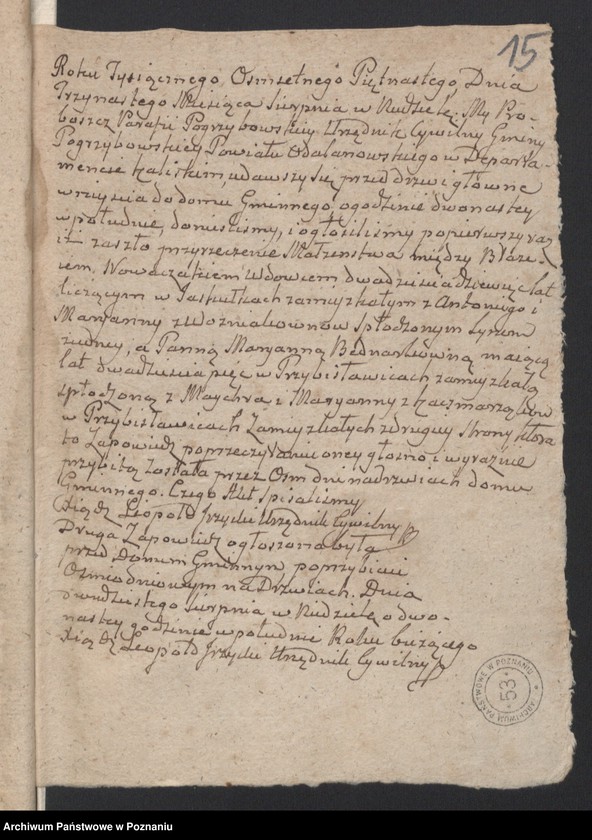 15
Roku Tysiącznego, Osmsetnego Piętnastego, Dnia
Trzynastego Miesiąca Sierpnia w Niedzielę. My Pro-
boszcz Parafii Pogrzybowskiey Urzędnik Cywilny Gminy
Pogrzybowskiey Powiatu Odalanowskiego w Departa-
mencie Kaliskim, udawszy się przed drzwi główne
weyscia do domu Gminnego ogodzinie dwonastey
wpołudnie, donieslismy, i ogłosiliśmy popierwszy raz
iż zaszło przyrzeczenie Małzenstwa między Błaze-
iem Nowaczakiem Wdowcem dwadziescia dziewięc lat
liczącym w Jaskułkach zamieszkałym z Antoniego i
Maryanny z Wozniakownow spłodzonym Synem
z iedney, a Panną Maryanną Bednarkówną maiącą
lat dwadziescia pięc w Przybisławicach zamieszkałą
spłodzoną z Maychra i Maryanny z Kaczmarząkow
w Przybisławicach Zamieszkałych z drugiey Strony ktora
to Zapowiedz poprzeczytaniu oney głosno i wyraznie
przybitą została przez Osm dni nadrzwiach domu
Gminnego. Czego Akt Spisalismy
Xiądz Leopold Urzędnik Cywilny
Druga Zapowiedz ogłoszona była
przed Domem Gminnym poprzybiciu
Osmiodniowym na Drzwiach. Dnia
dwudziestego Sierpnia w Niedzielę o dwo-
nastey godzinie wpołudnie Roku biezącego
Xiądz Leopold Urzędnik Cywilny
ARCHIWUM PAŃSTWOWE W POZNANIU
53
Archiwum Państwowe w Poznaniu